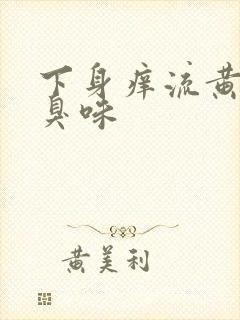 下身痒流黄
臭味
黄美利